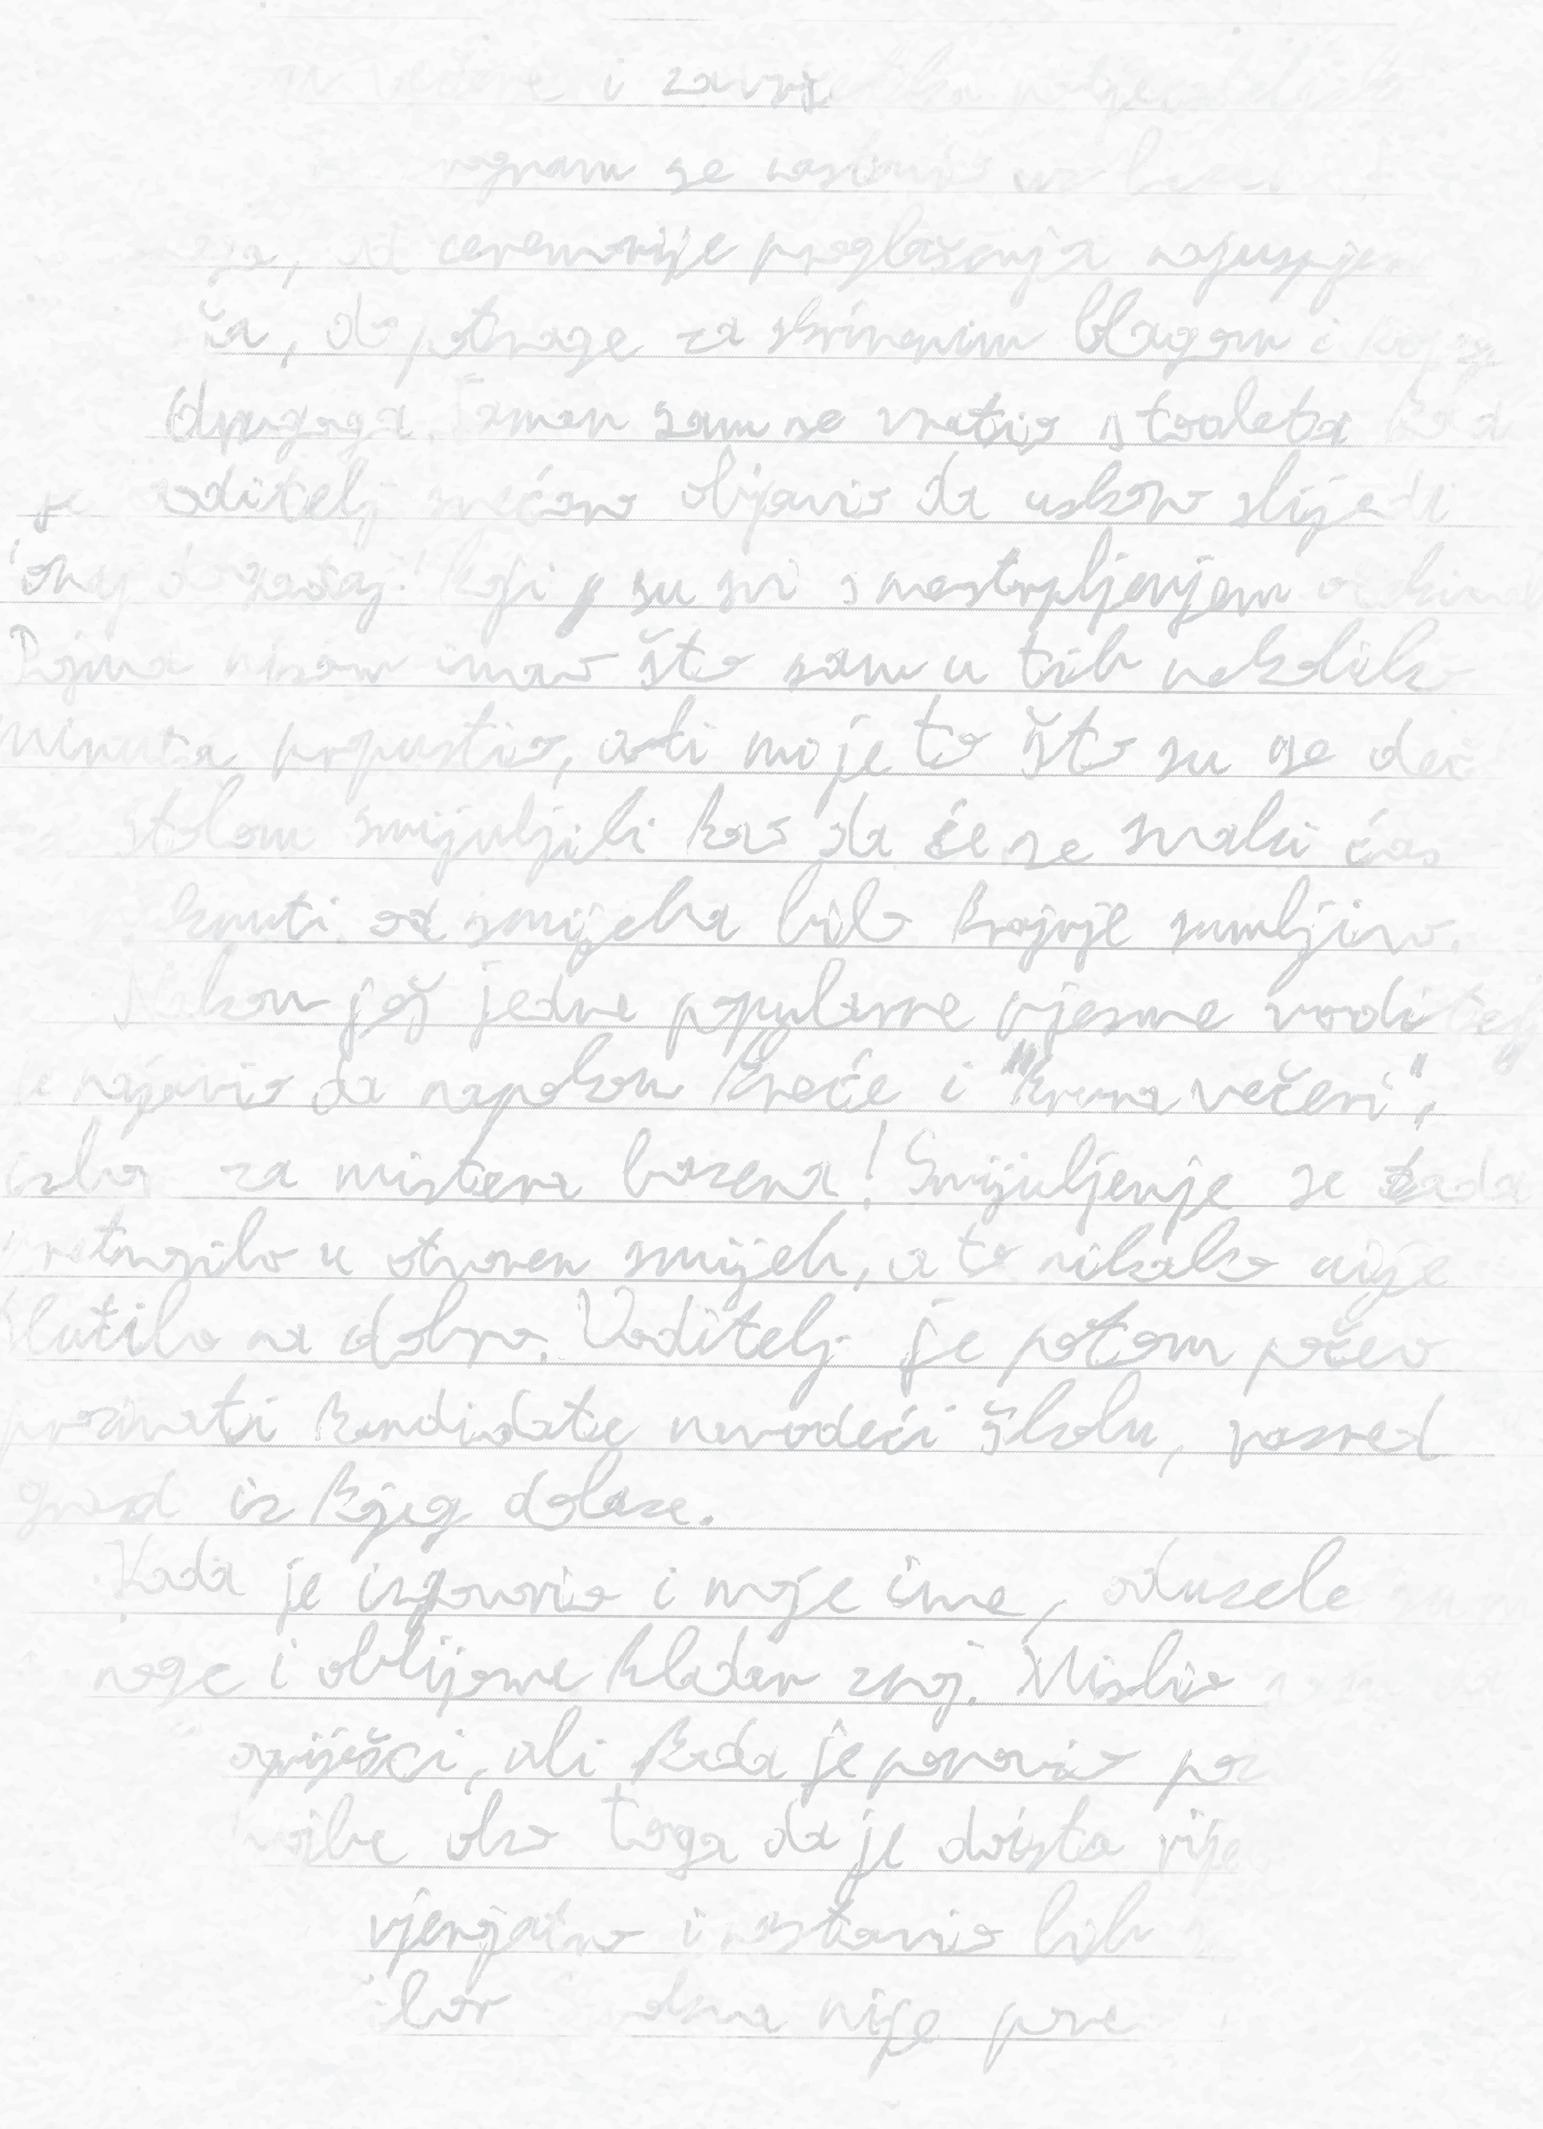 večere i zavr
program se nastavio uz bazen
od ceremonije proglašenja najuspje
ča, do potrage za skrivenim blagom i koječega
drugoga. Taman sam se vratio s toaleta kada
je voditelj svečano objavio da uskoro slijedi
onaj događaj koji su svi s nestrpljenjem očekival
Pojma nisam imao što sam u tih nekoliko
minuta propustio, ali mo je to što su se deč
stolom smijuljili kao da će se svaki čas
knuti od smijeha bilo krajnje sumljivo.
Nakon još jedne popularne pjesme voditelj
je najavio da napokon kreće i "kruna večeri",
izbor za mistera bazena! Smijuljenje se tada
pretvorilo u otvoren smijeh, a to nikako nije
slutilo na dobro. Voditelj je potom počeo
prozivati kandidate navodeći školu, razred
grad iz kojeg dolaze.
Kada je izgovorio i moje ime, oduzele
noge i oblijeme hladan znoj. Mislio
ogriješci, ali kada je ponovio poz
dvojbe oko toga da je doista rije
vjerojatno i nastavio bih
nije pre